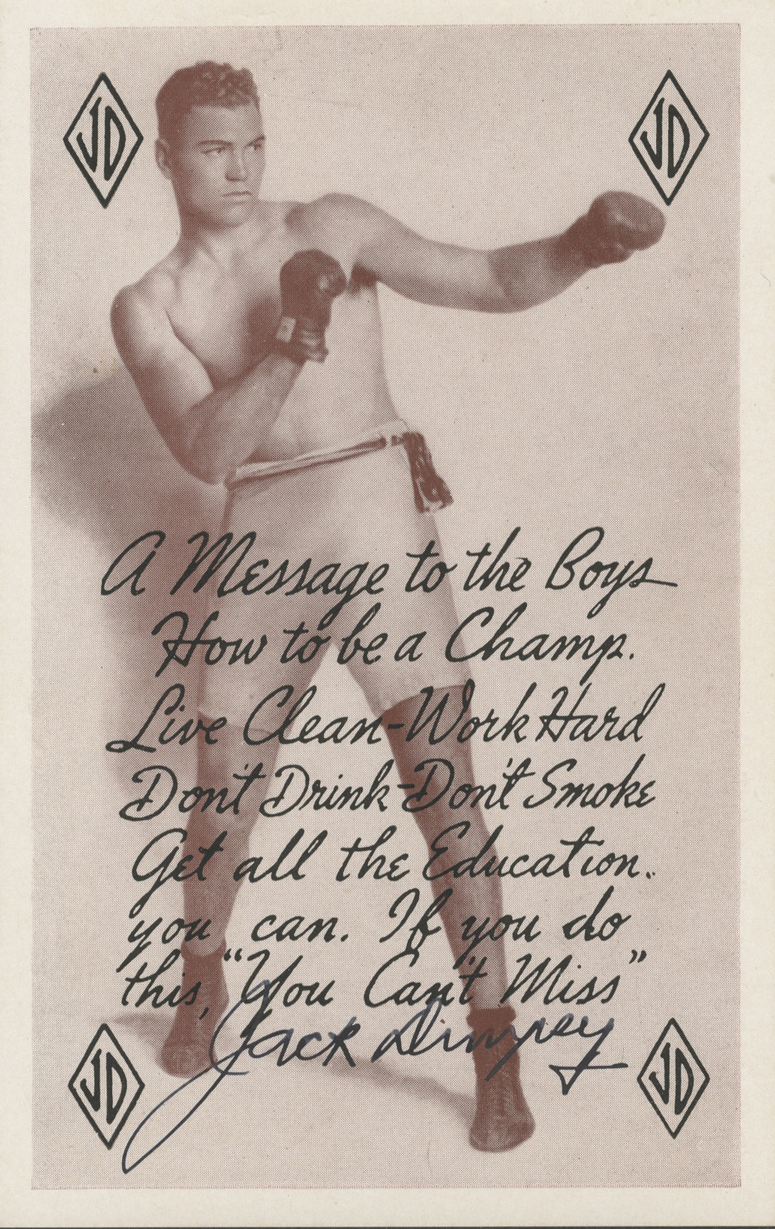 JD JD
A Message to the Boys
How to be a Champ.
Live Clean-Work Hard
Don't Drink-Don't Smoke
Get all the Education.
you can. If you do
this, "You Can't Miss"
Jack Dempsey
JD JD